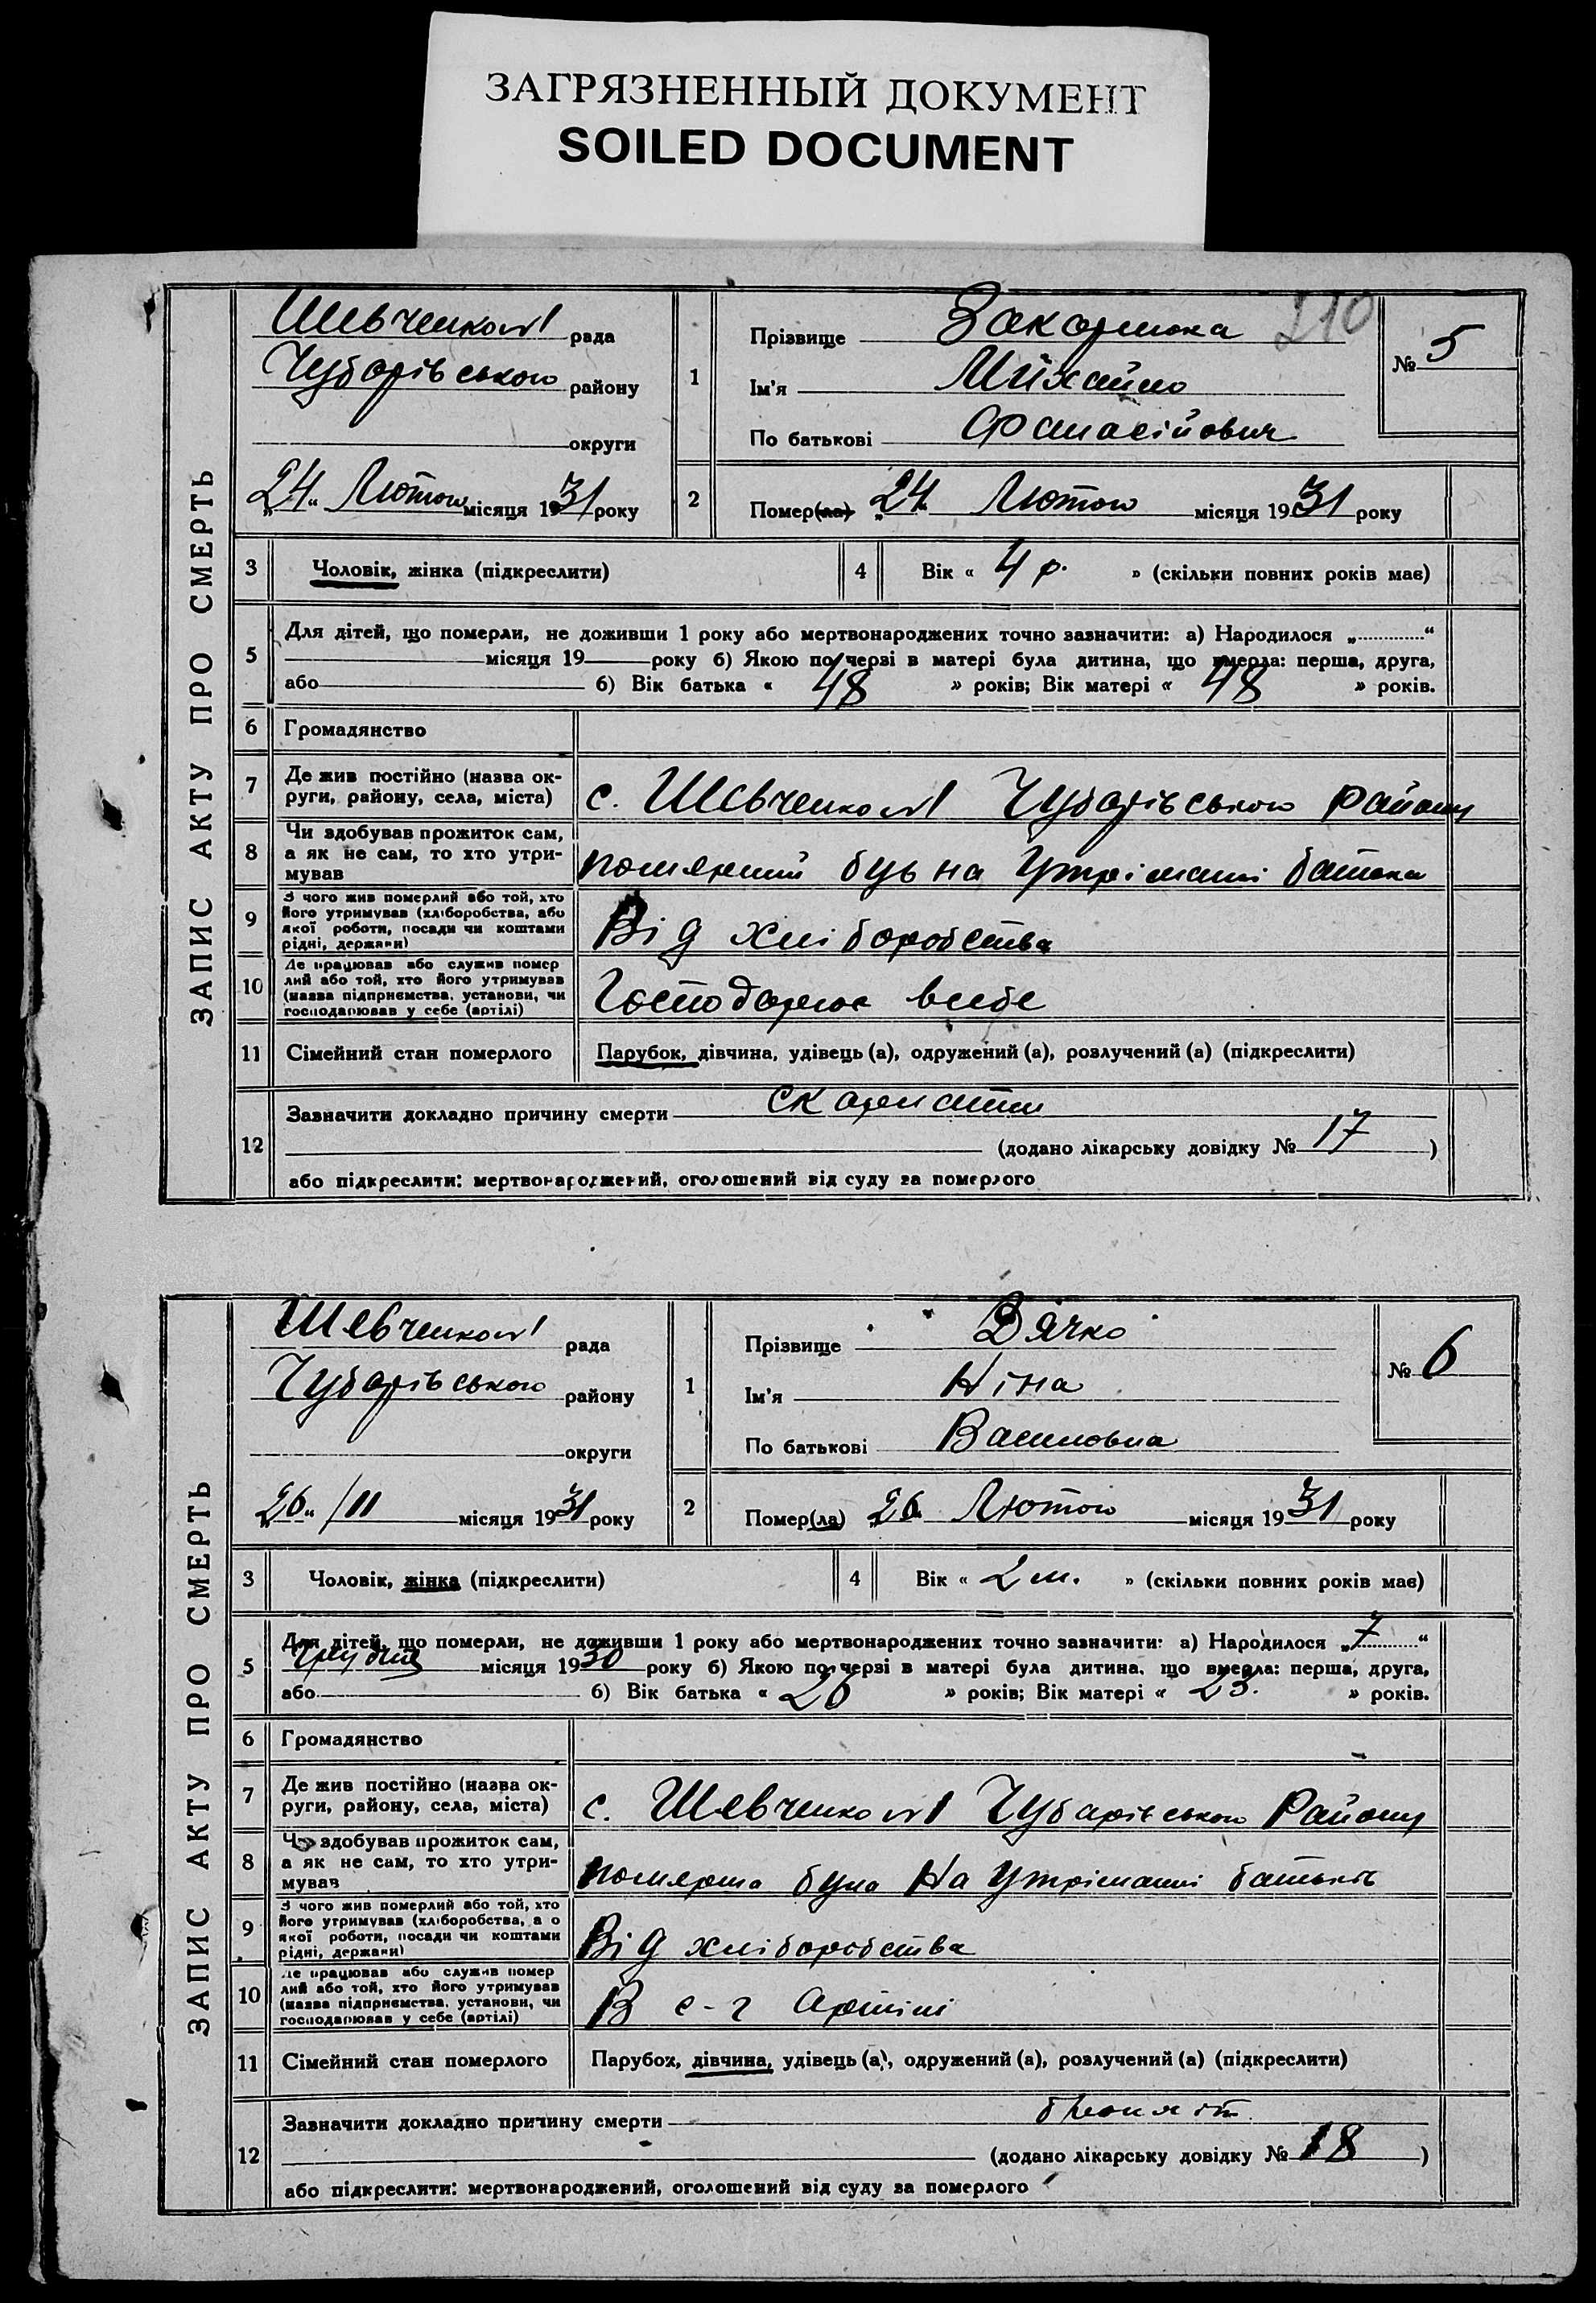 ЗАГРЯЗНЕННЫЙ ДОКУМЕНТ
SOILED DOCUMENT
ЗАПИС АКТУ ПРО СМЕРТЬ
Шевченко №1 рада
Чубарівського району
округи
„24“ Лютого місяця 1931 року
1
Прізвище 210
Ім'я Михайло
По батькові Афанасійович
№ 5
2 Помер(ла) „24“ Лютого місяця 1931 року
3 Чоловік, жінка (підкреслити)
4 Вік « 4 р. » (скільки повних років має)
5 Для дітей, що померли, не доживши 1 року або мертвонароджених точно зазначити: а) Народилося „............“
місяця 19 року б) Якою по черзі в матері була дитина, що вмерла: перша, друга,
або б) Вік батька « 48 » років; Вік матері « 48 » років.
6 Громадянство
7 Де жив постійно (назва ок-
руги, району, села, міста)
с. Шевченко №1 Чубарівського району
8 Чи здобував прожиток сам,
а як не сам, то хто утри-
мував
був на утріманні батька
9 З чого жив померлий або той, хто
його утримував (хліборобства, або
якої роботи, посади чи коштами
рідні, держави)
Від хліборобства
10 Де працював або служив помер
лий або той, хто його утримував
(назва підприємства, установи, чи
господарював у себе (артілі)
Господарює в себе
11 Сімейний стан померлого
Парубок, дівчина, удівець (а), одружений (а), розлучений (а) (підкреслити)
12 Зазначити докладно причину смерти скарлатин
(додано лікарську довідку № 17 )
або підкреслити: мертвонароджений, оголошений від суду за померлого
ЗАПИС АКТУ ПРО СМЕРТЬ
Шевченко №1 рада
Чубарівського району
округи
„26“ /II місяця 1931 року
1
Прізвище Дячко
Ім'я Ніна
По батькові Василовна
№ 6
2 Помер(ла) „26“ Лютого місяця 1931 року
3 Чоловік, жінка (підкреслити)
4 Вік « 2 м. » (скільки повних років має)
5 Для дітей, що померли, не доживши 1 року або мертвонароджених точно зазначити: а) Народилося „7“
Грудня місяця 1930 року б) Якою по черзі в матері була дитина, що вмерла: перша, друга,
або б) Вік батька « 26 » років; Вік матері « 23. » років.
6 Громадянство
7 Де жив постійно (назва ок-
руги, району, села, міста)
с. Шевченко №1 Чубарівського Району
8 Чи здобував прожиток сам,
а як не сам, то хто утри-
мував
померша була На утріманні батьків
9 З чого жив померлий або той, хто
його утримував (хліборобства, а о
якої роботи, посади чи коштами
рідні, держави)
Від хліборобства
10 Де працював або служив помер
лий або той, хто його утримував
(назва підприємства, установи, чи
господарював у себе (артілі)
В с-г Артілі
11 Сімейний стан померлого
Парубок, дівчина, удівець (а), одружений (а), розлучений (а) (підкреслити)
12 Зазначити докладно причину смерти
(додано лікарську довідку № 18 )
або підкреслити: мертвонароджений, оголошений від суду за померлого